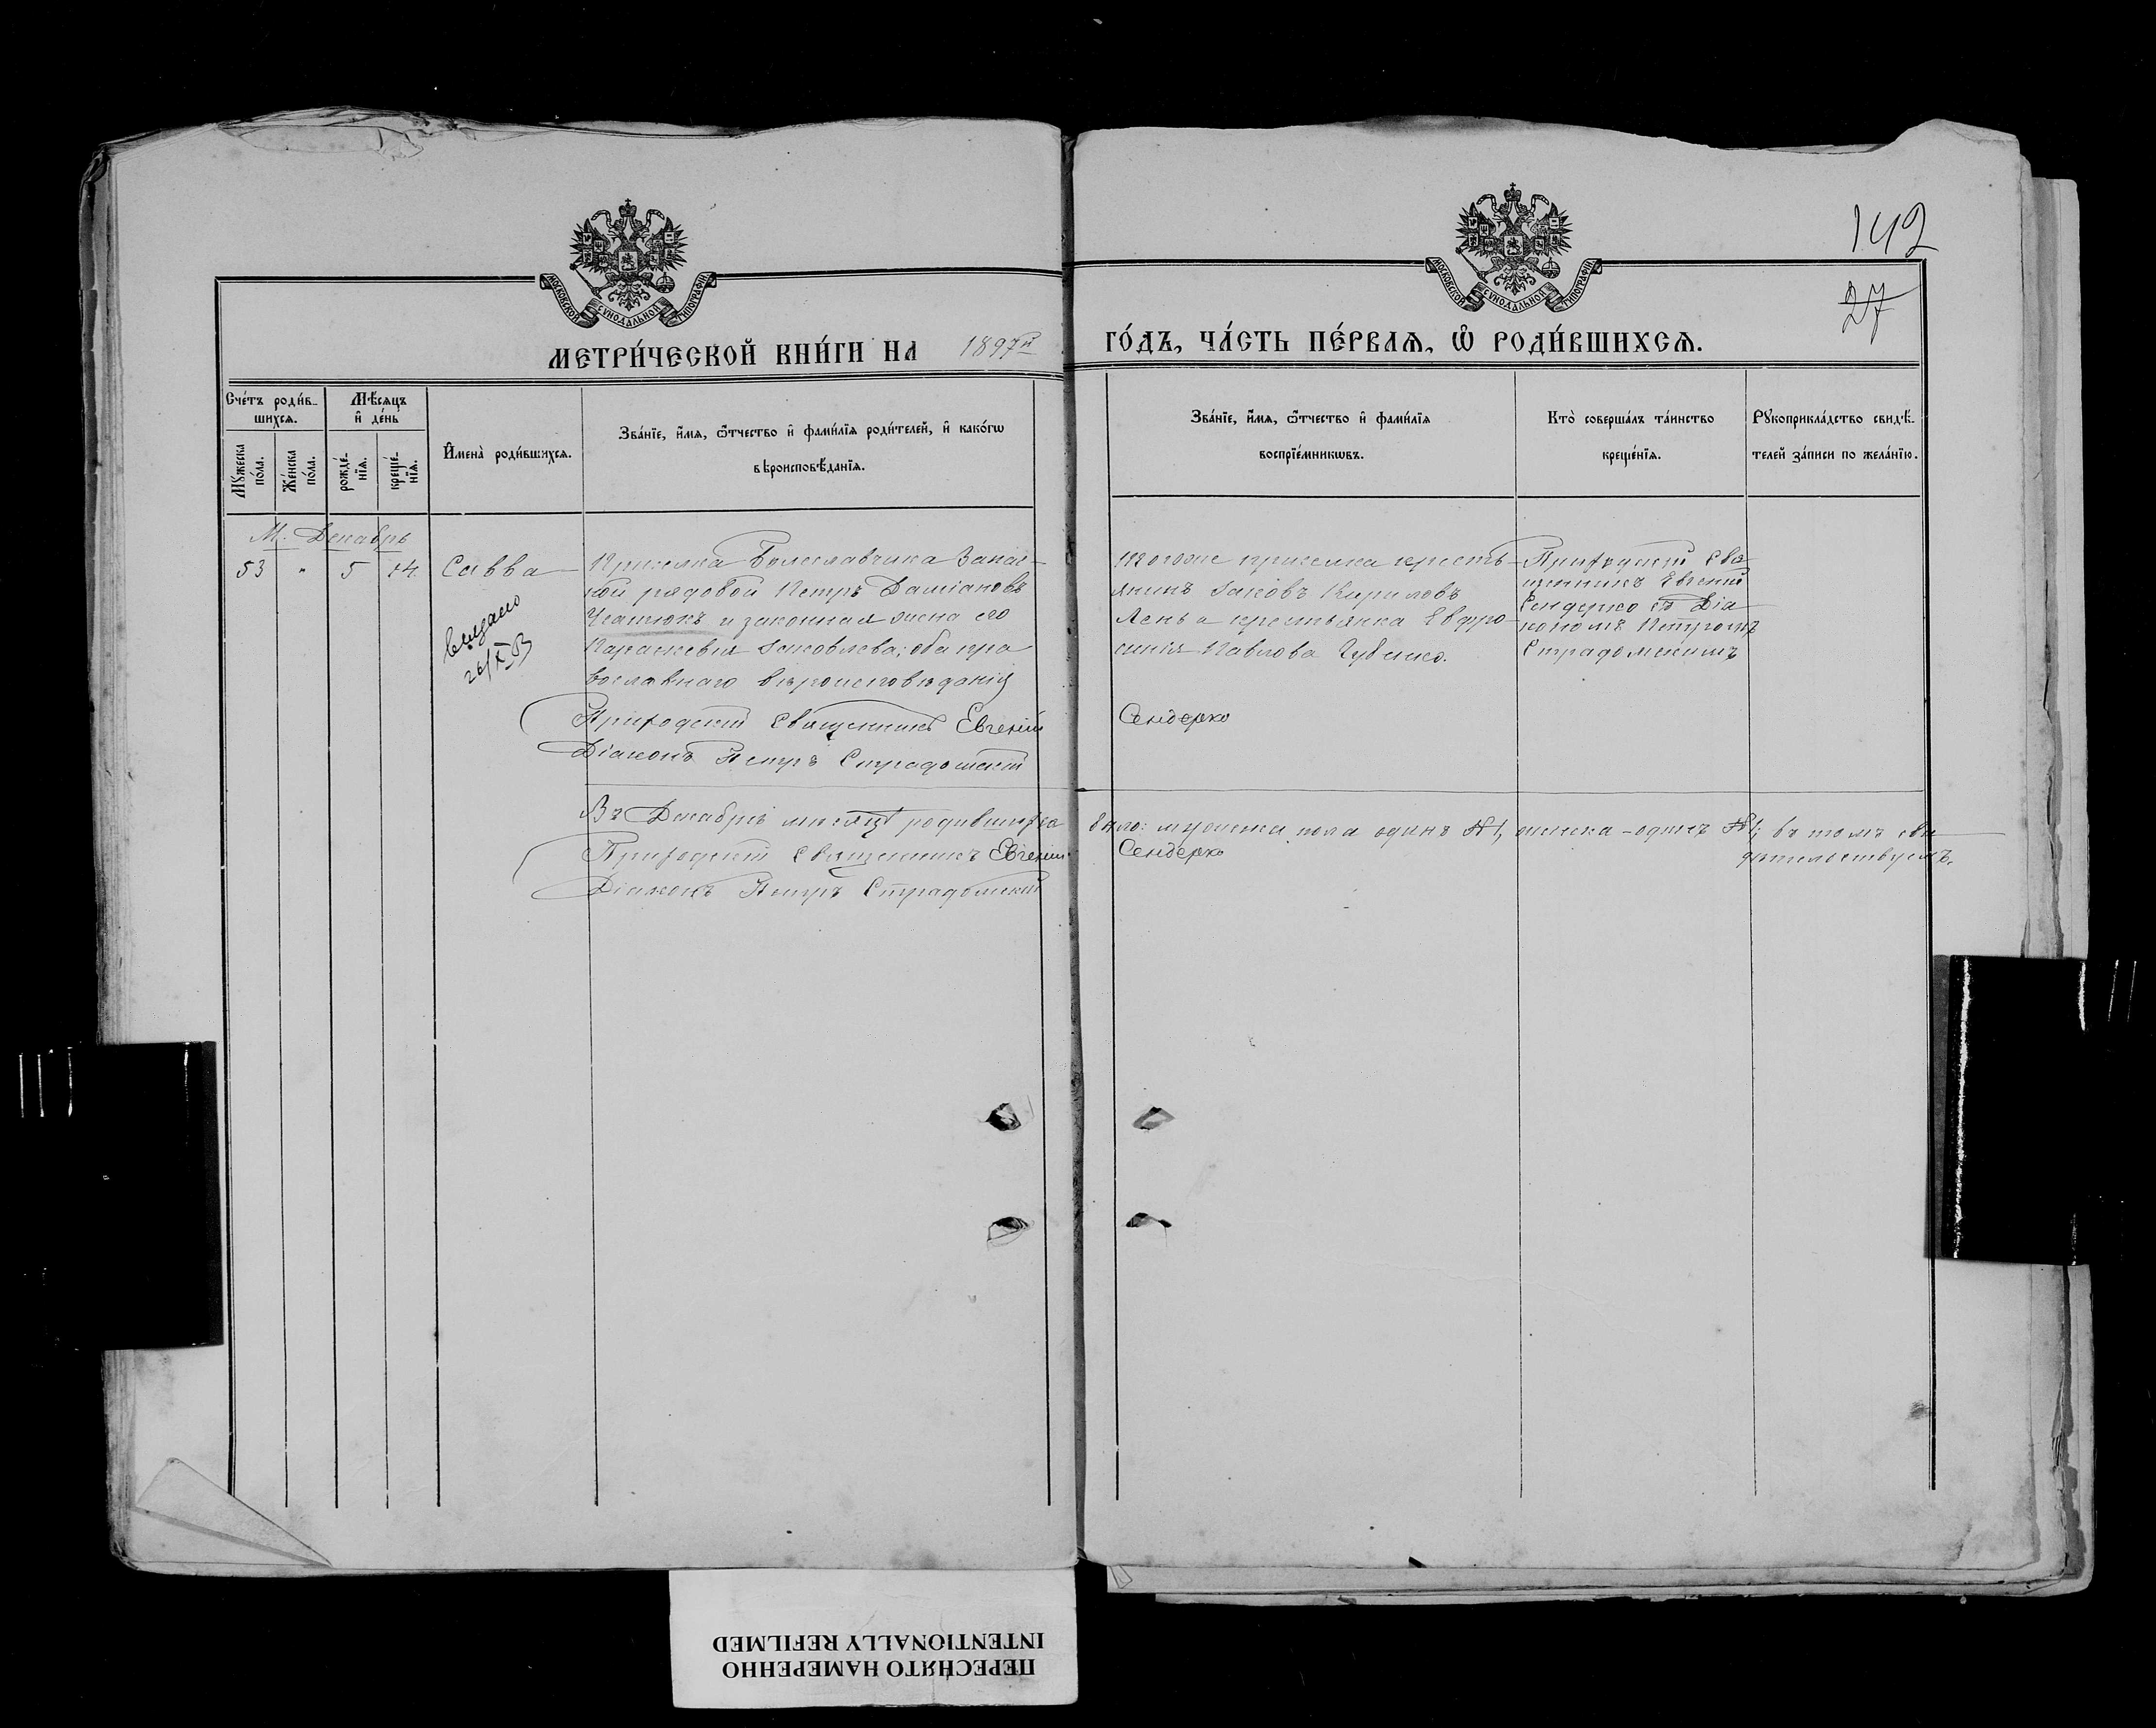 142
27
МОСКОВСКОЙ СѴНОДАЛЬНОЙ ТИПОГРАФІИ
МОСКОВСКОЙ СѴНОДАЛЬНОЙ ТИПОГРАФІИ
МЕТРИ́ЧЕСКОЙ КНИ́ГИ НА 1897й ГО́ДЪ, ЧА́СТЬ ПЕ́РВАѦ, Ѡ҆ РОДИ́ВШИХСѦ.
Сче́тъ роди́в-
шихсѧ.
Мꙋжеска по́ла.
Же́нска по́ла.
Мѣ́сѧцъ
и҆ де́нь
рожде́-нїѧ.
креще́-нїѧ.
И҆мена̀ роди́вшихсѧ.
Зва́нїе, и҆́мѧ, ѻ҆́тчество и҆ фами́лїѧ роди́телей, и҆ како́гѡ
вѣроисповѣ́данїѧ.
Зва́нїе, и҆́мѧ, ѻ҆́тчество и҆ фами́лїѧ
воспрїе́мникѡвъ.
Кто̀ соверша́лъ та́инство
креще́нїѧ.
Рꙋкоприкла́дство свидѣ́-
телей за́писи по жела́нїю.
М. Декабрь
53 " 5 14 Савва
выдано
26/X
Приселка Болеславчика Запас-
ной рядовой Петръ Даміановъ
и законная жена его
Параскевія Іаковлева; оба пра
вославнаго вѣроисповѣданія
Приходскій Священникъ Евгеній Сендерко
Діаконъ Петръ Страдомскій
тогоже приселка кресть-
янинъ Іаковъ Кириловъ
а крестьянка Евфро-
синія Павлова
Приходскій Свя-
щенникъ Евгеній
Сендерко съ Діа
кономъ Петромъ
Страдомскимъ
Въ Декабрѣ мѣсяцѣ родившихся было: мужеска пола одинъ №1, женска-одинъ №1; въ томъ сви
дѣтельствуемъ.
Приходскій Священникъ Евгеній Сендерко
Діаконъ Петръ Страдомскій
ПЕРЕСНЯТО НАМЕРЕННО
INTENTIONALLY REFILMED